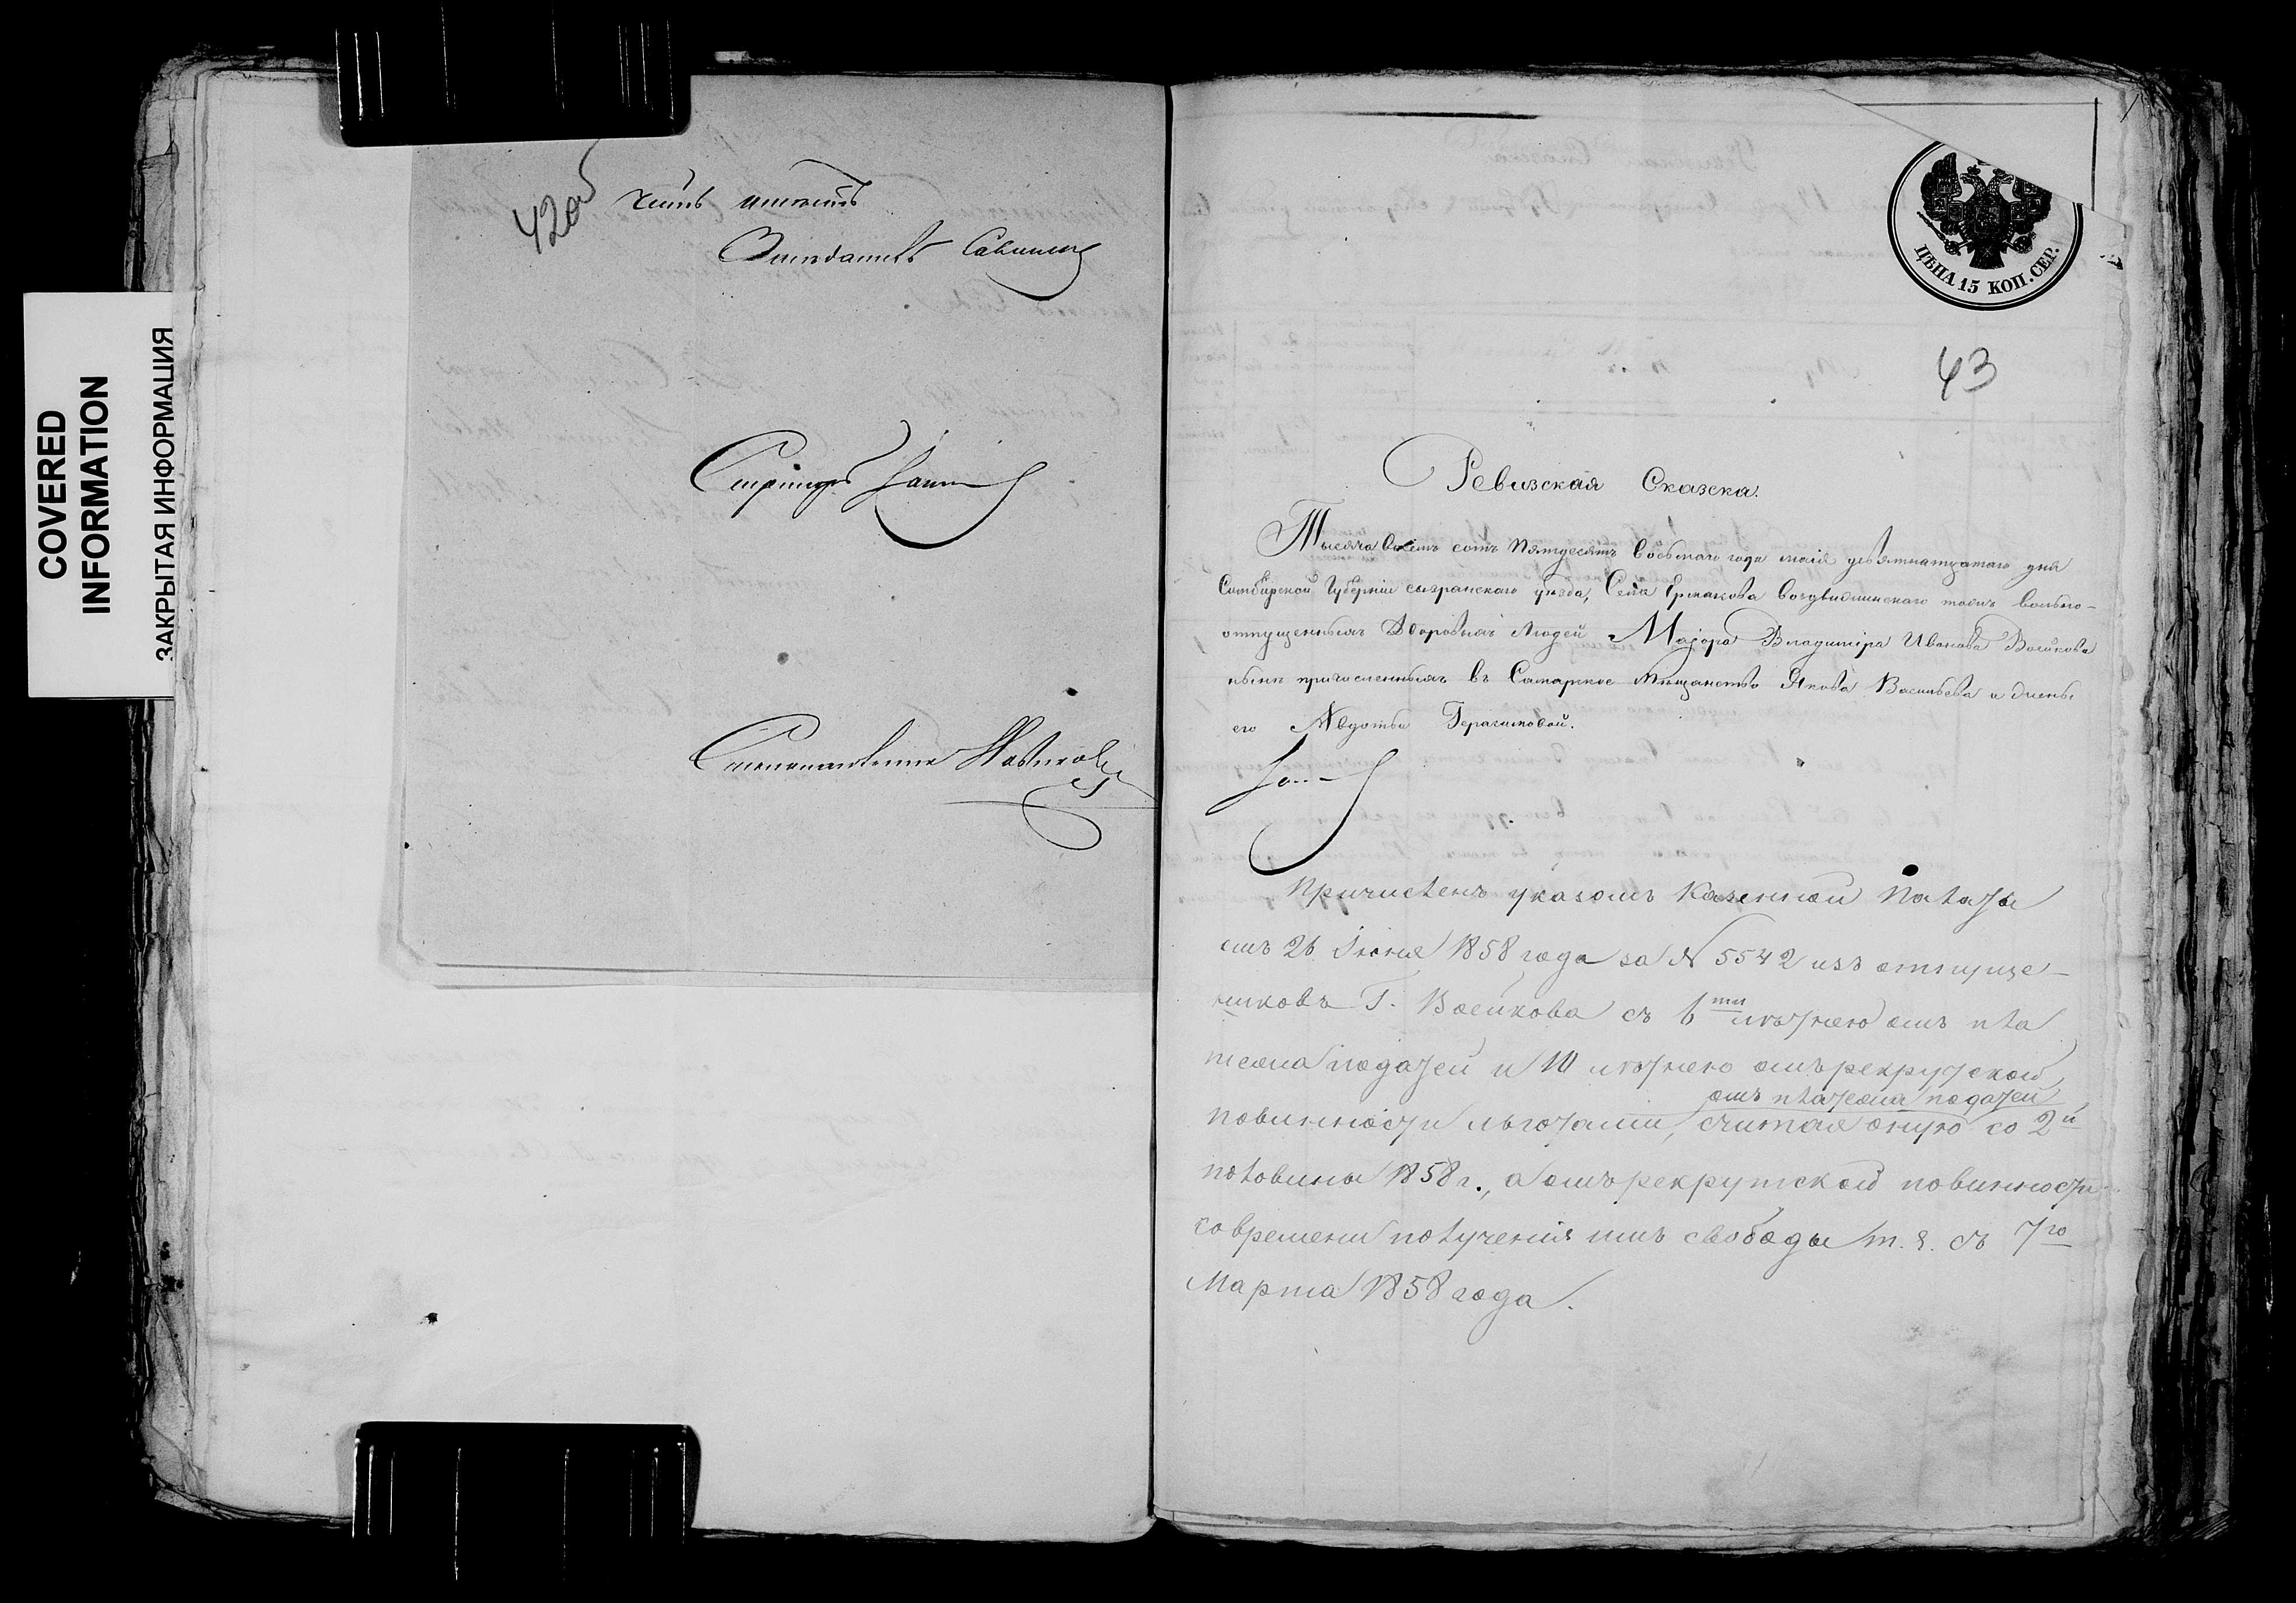 COVERED
INFORMATION
ЗАКРЫТАЯ ИНФОРМАЦИЯ
42об
ЦѢНА 15 КОП. СЕР.
43
Ревизская Сказска.
Тысяча восемь сотъ пятдесятъ восьмаго года маія девятнатцатаго дня
Симбирской Губерніи сызранскаго уѣзда, Села Ермакова воздвиженскаго тожъ вольно-
отпущенныхъ Дворовыхъ Людей Маіора Владиміра Иванова Воейкова
нынѣ причисленныхъ въ Самарское Мѣщанство Якова Васильева и жены
его Авдотьи Герасимовой.
Причисленъ указомъ Казенной Палаты
отъ 26 Іюня 1858 года за № 5542 изъ отпуще-
нниковъ Г. Воейкова съ 6ти лѣтнею отъ пла
тежа податей и 10 лѣтнею отъ рекрутской
отъ платежа податей
повинности льготами, считая оную со 2й
половины 1858 г., а отъ рекрутской повинности
со времени полученія имъ свободы т. е. съ 7го
Марта 1858 года.